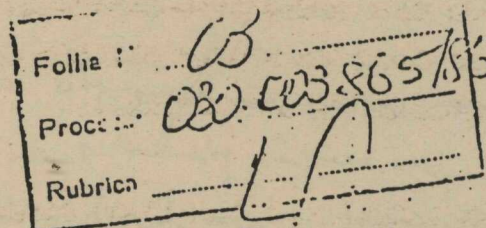 Folha : 03
Proc... 030.003.865/86
Rubrica